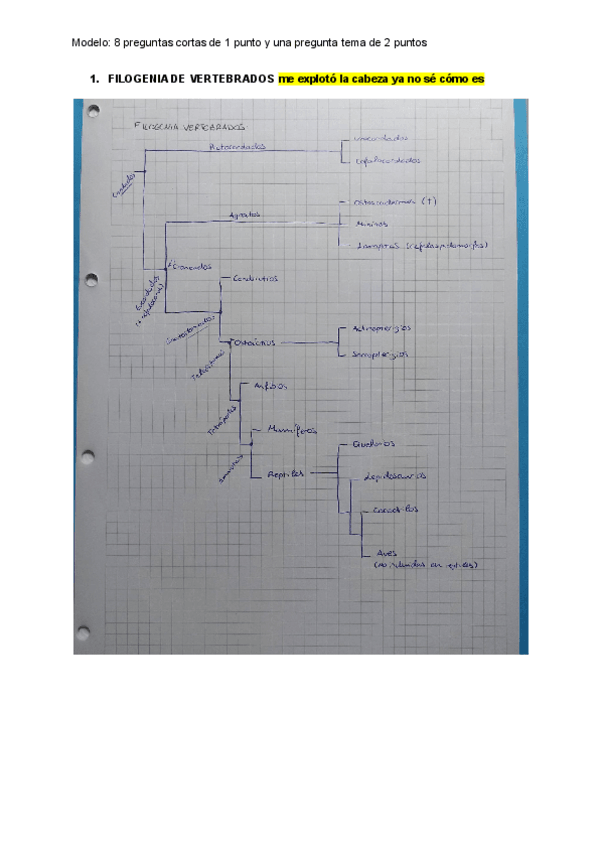 Modelo: 8 preguntas cortas de 1 punto y una pregunta tema de 2 puntos
1. FILOGENIA DE VERTEBRADOS me explotó la cabeza ya no sé cómo es
FILOGENIA VERTEBRADOS
Urocordados
Protocordados
Cefalocordados
Cordados
Ostracodermos (†)
Agnatos
Mixinos
Lampreas (cefalaspidomorfos)
Craneados
Condrictios
Gnatostomados
Actinopterigios
Osteictios
Sarcopterigios
Anfibios
Tetrápodos
Mamíferos
Amniotas
Quelonios
Reptiles
Lepidosaurios
Cocodrilos
Aves